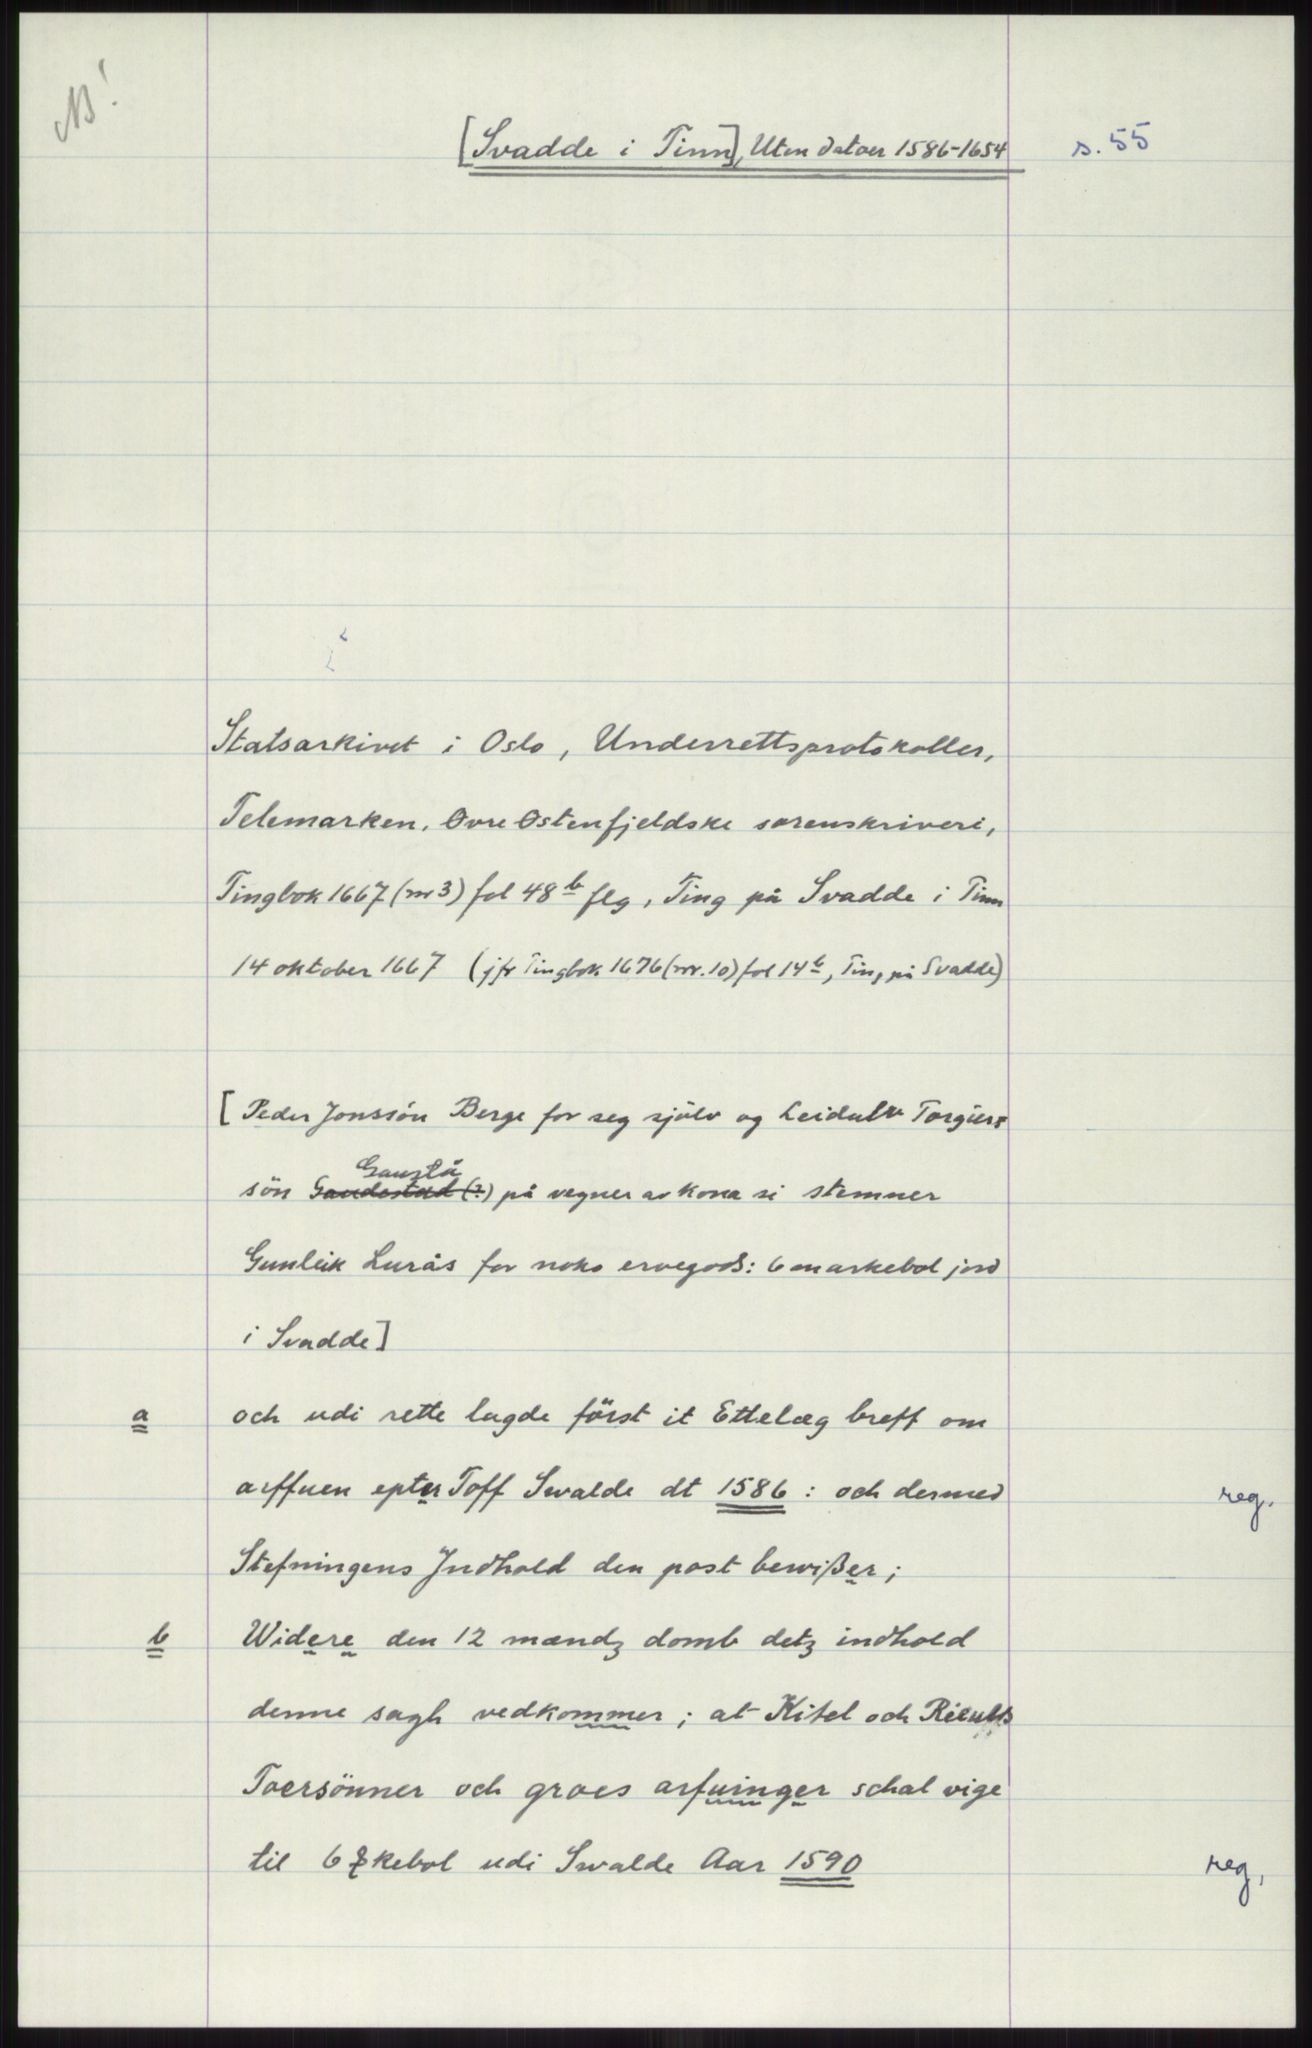 NB!
[Svadde i Tinn], Uten datoer 1586-1654 s. 55
Statsarkivet i Oslo, Underrettsprotokoller,
Telemarken. Øvre Østenfjeldske sorenskriveri,
Tingbok 1667 (nr 3) fol 48 b flg, Ting på Svadde i Tinn
14 oktober 1667 (jfr Tingbok 1676 (nr. 10) fol 14 b, Ting på Svadde)
[Peder Jonssön Berge for seg sjölv og Leidulv Torgiers
Gaustå
sön Gaudestad (?) på vegner av kona si stemner
Gunleik Lurås for noko ervegods: 6 markebol jord
i Svadde]
a och udi rette lagde först it Ettelæg breff om
arffuen epter Toff Swalde dt 1586 : och dermed reg.
Stefningens Indhold den post bewißer;
b Widere den 12 mændz domb detz indhold
denne sagh vedkommer; at Kitel och
Toersönner och groes arfuinger schal vige
til 6 kebol udi Swalde Aar 1590 reg,